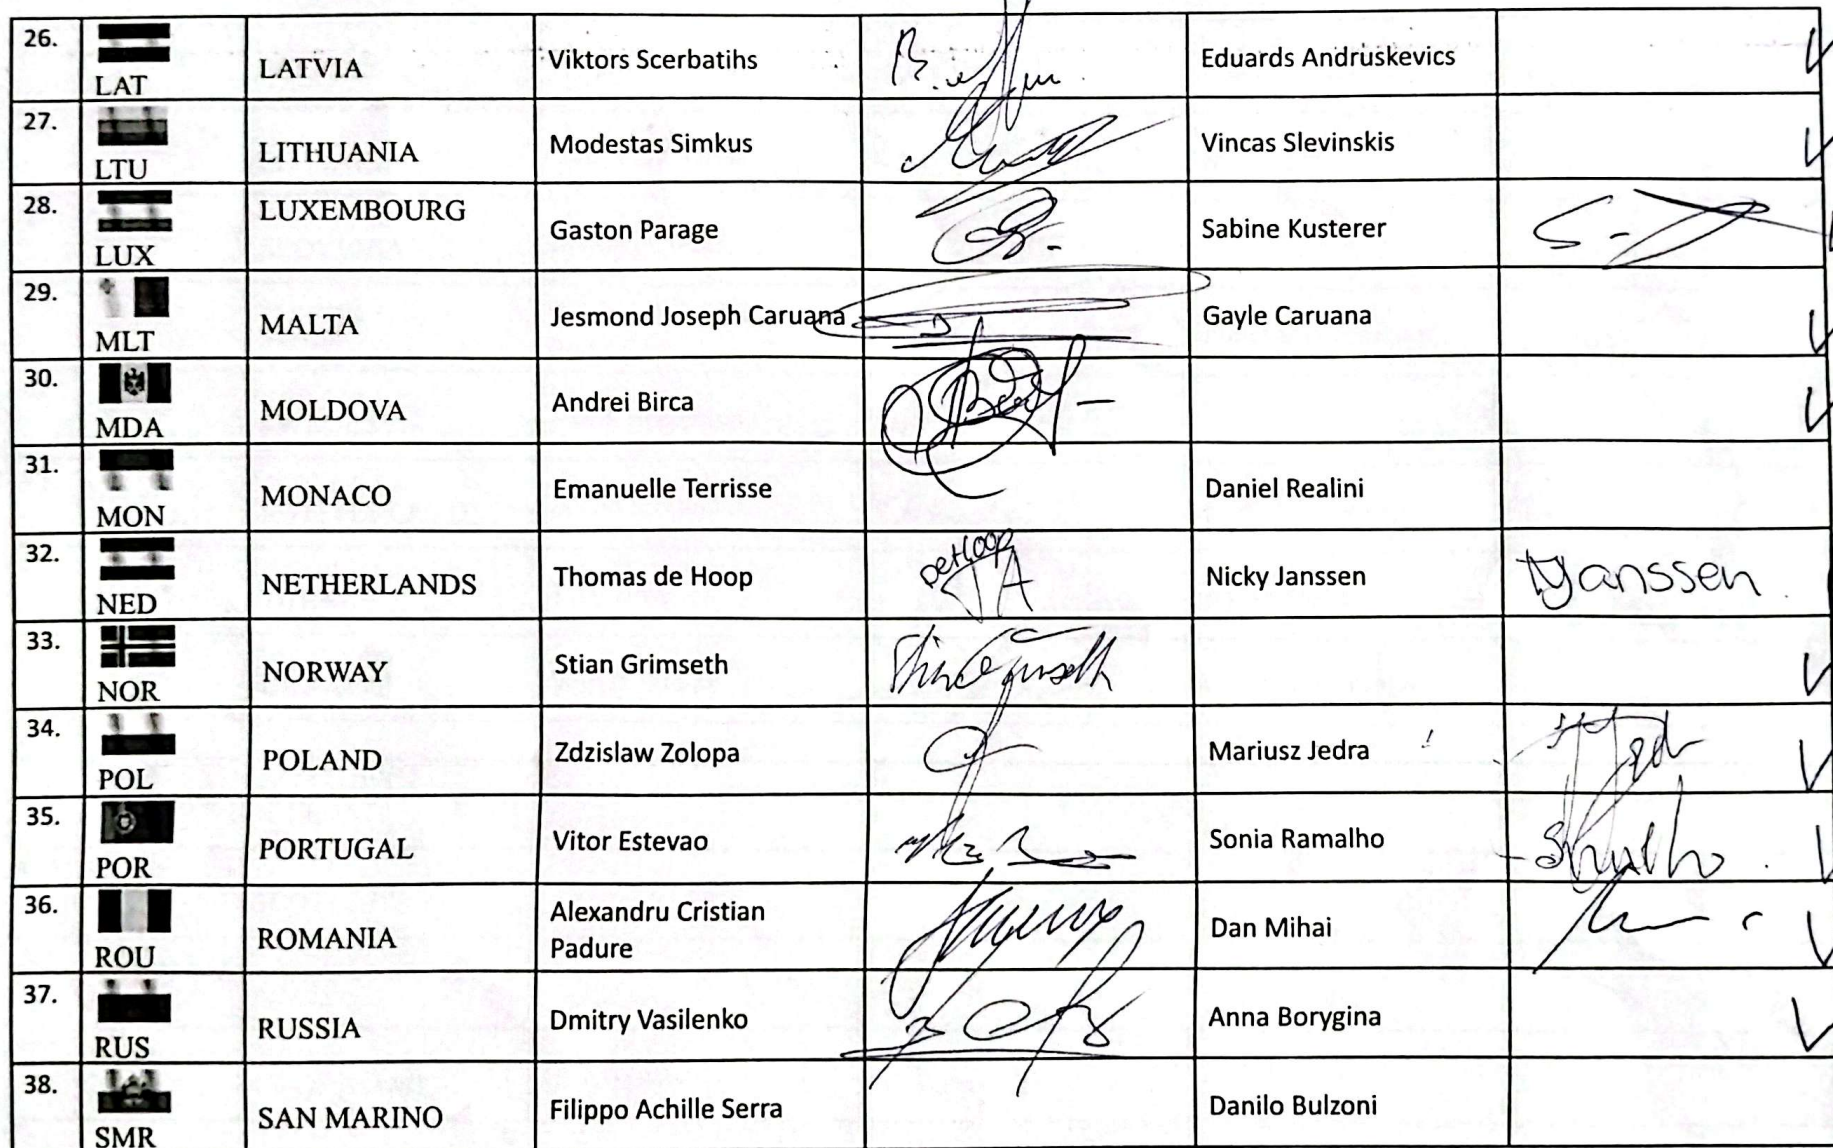 26. LAT LATVIA Viktors Scerbatihs Eduards Andruskevics
27. LTU LITHUANIA Modestas Simkus Vincas Slevinskis
28. LUX LUXEMBOURG Gaston Parage Sabine Kusterer
29. MLT MALTA Jesmond Joseph Caruana Gayle Caruana
30. MDA MOLDOVA Andrei Birca
31. MON MONACO Emanuelle Terrisse Daniel Realini
32. NED NETHERLANDS Thomas de Hoop deHoop Nicky Janssen Janssen
33. NOR NORWAY Stian Grimseth
34. POL POLAND Zdzislaw Zolopa Mariusz Jedra
35. POR PORTUGAL Vitor Estevao Sonia Ramalho
36. ROU ROMANIA Alexandru Cristian
Padure Dan Mihai
37. RUS RUSSIA Dmitry Vasilenko Anna Borygina
38. SMR SAN MARINO Filippo Achille Serra Danilo Bulzoni